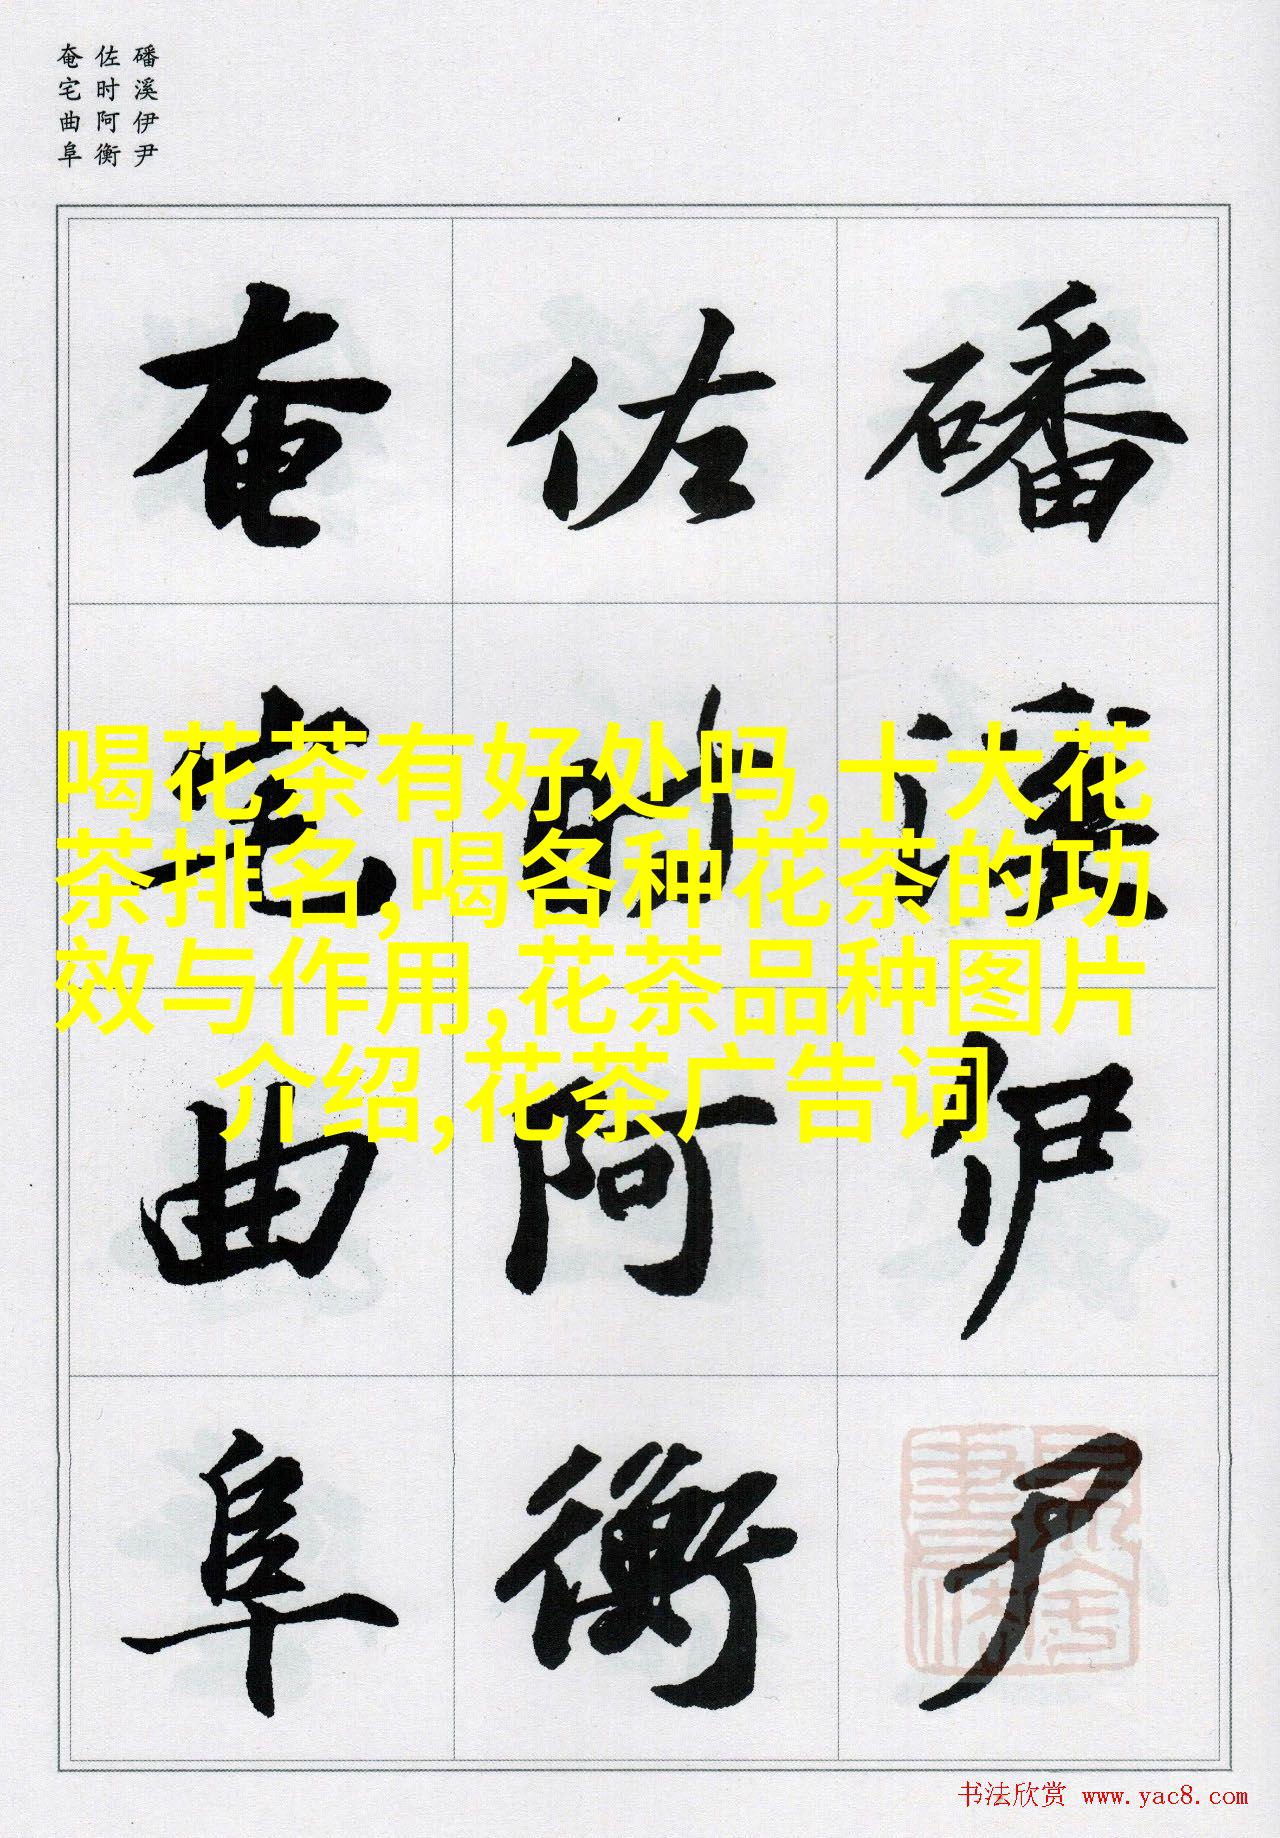 磻溪伊尹
佐时阿衡
奄宅曲阜
磻溪伊尹
佐时阿衡
奄宅曲阜
喝花茶有好处吗,十大花
茶排名,喝各种花茶的功
效与作用,花茶品种图片
介绍,花茶广告词
书法欣赏 www.yac8.com